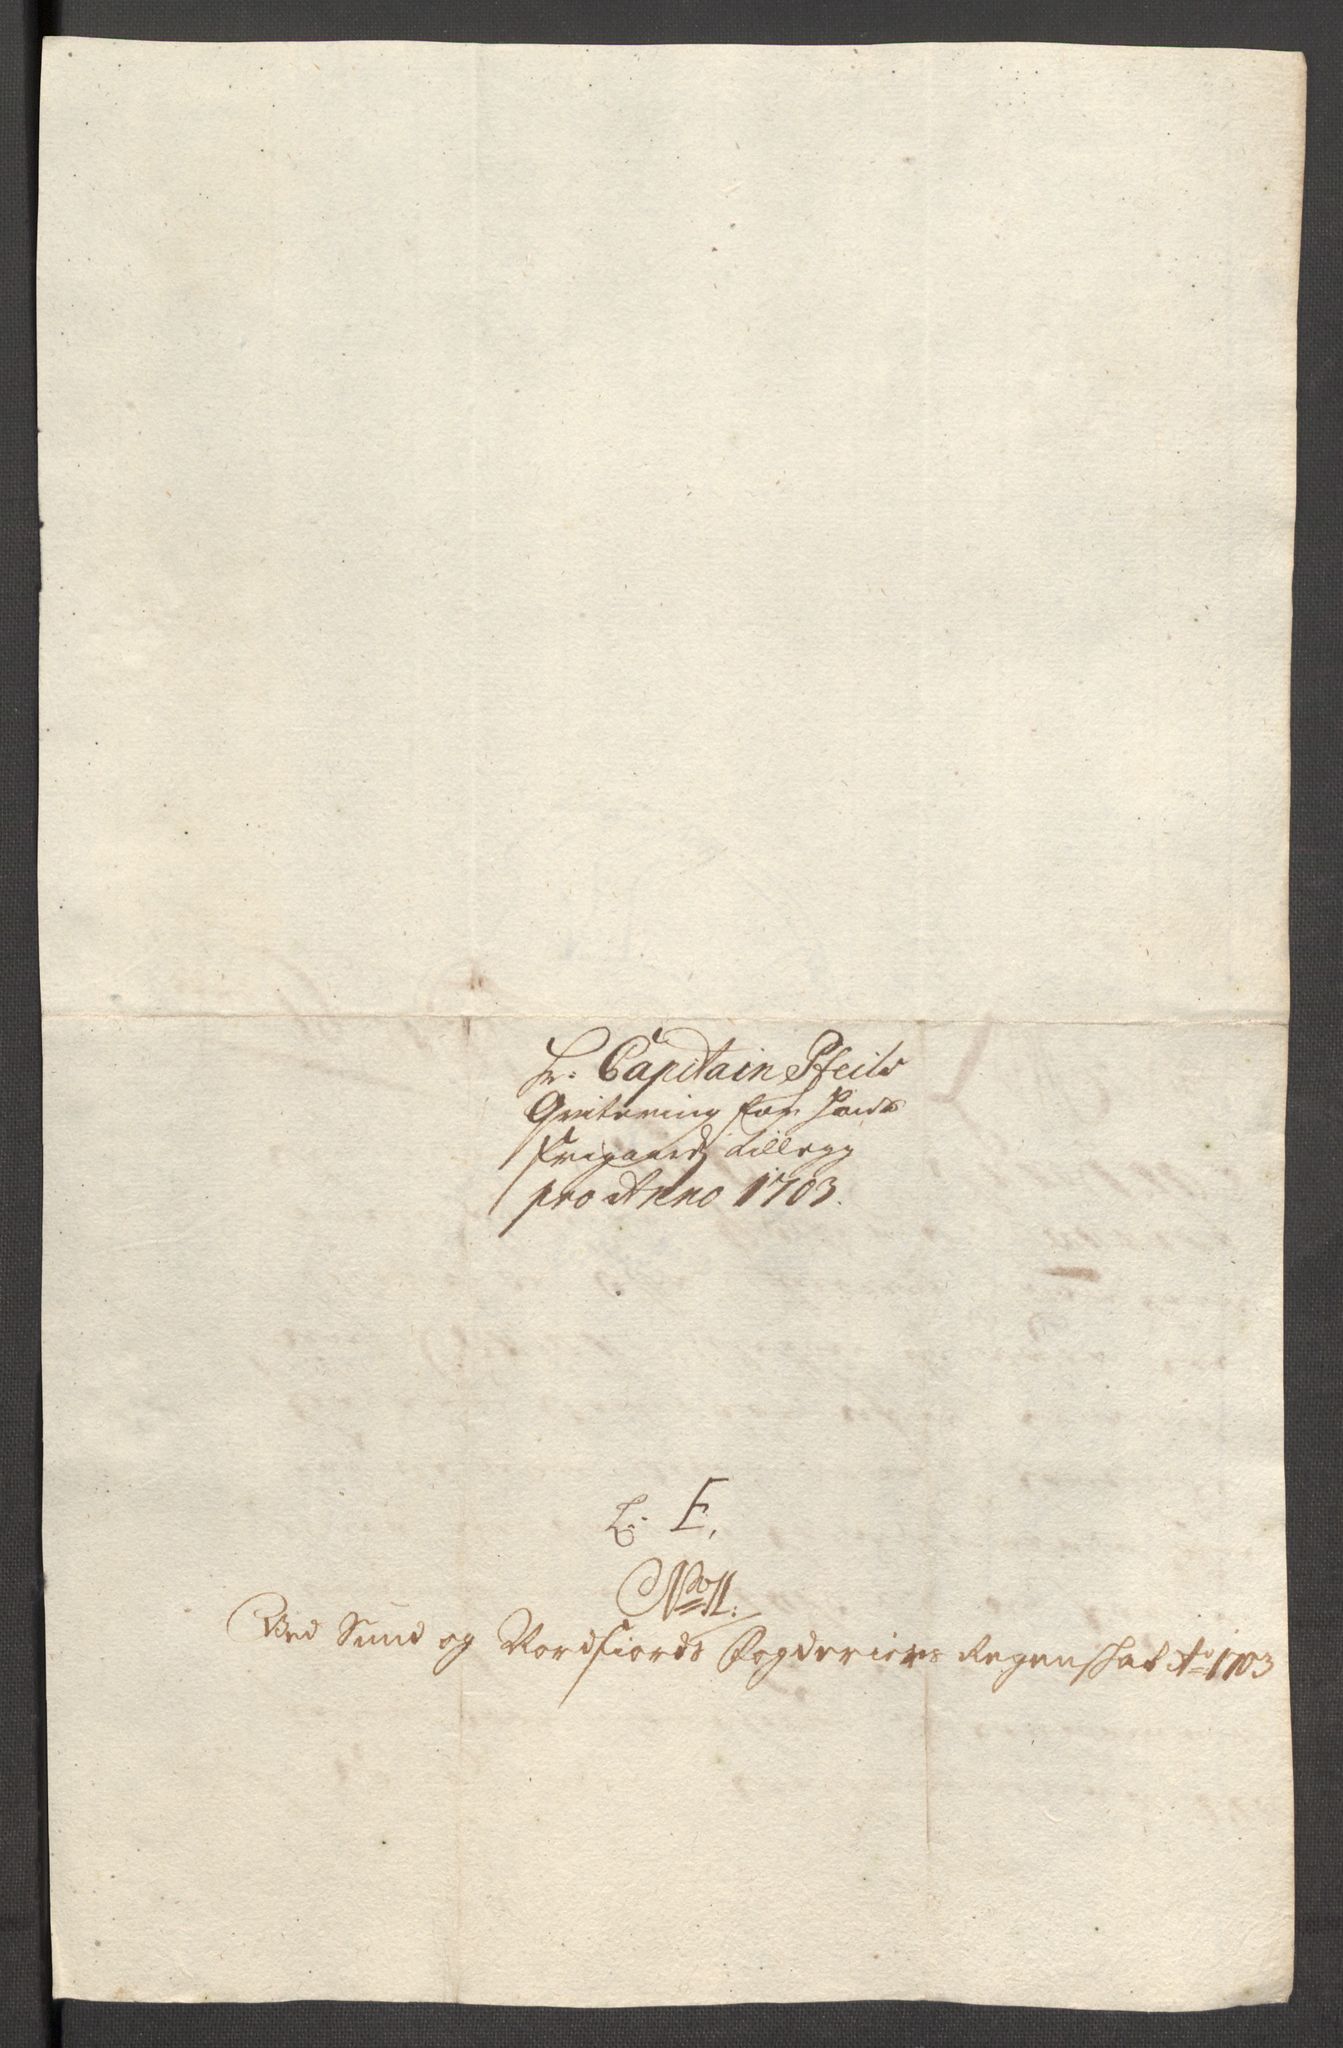 Hr. Capitain Pfeils
Qvitering for hans
Frigaards tillegg
pro Anno 1703.
L: E,
No 11:
Ved Sund og Nordfiords Fogderiers Regenskab Ao 1703